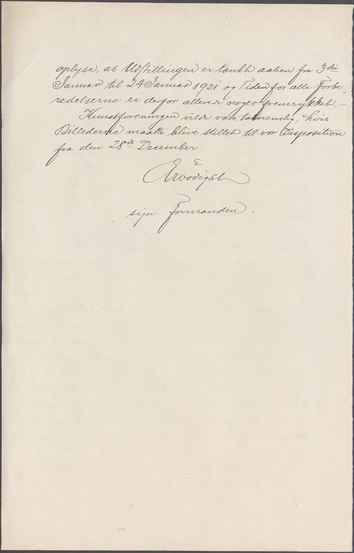 oplyse, at Udstillingen er tænkt aaben fra 3die
Januar til 24 Januar 1921 og Tiden for alle Forbe-
redelserne er derfor allerede meget fremrykket. –
Kunstforeningen vilde være taknemlig, hvis
Billederne maatte blive stillet til vor Disposition
fra den 28de December
Ærbødigst
sign Formanden.